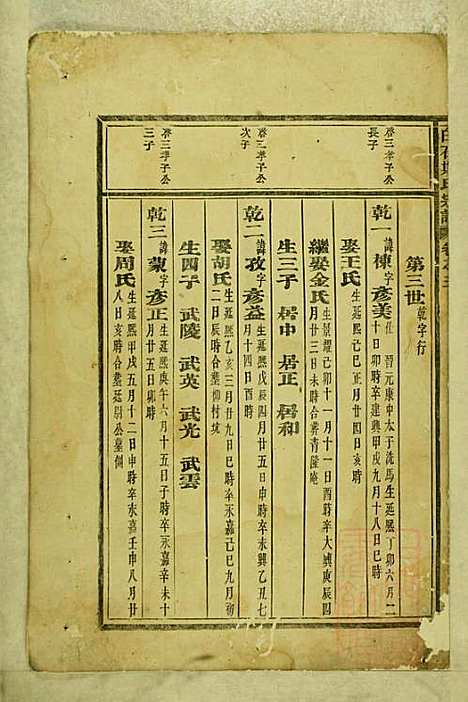 第三世 乾字行
啓三孝子公
長子
乾一 諱棟字彥美 仕晉元康中太子洗馬生延熙丁卯六月二
十日卯時卒建興甲戌九月十八日巳時
娶王氏 生延熙己巳正月廿四日亥時
繼娶金氏 生景耀己卯十一月十一日酉時卒大興庚辰四
月廿三日未時合葬青隆庵
生三子 居中 居正 居和
啓三孝子公
次子
乾二 諱孜字彥益 生延熙戊辰四月廿五日申時卒永興乙丑七
月十四日酉時
娶胡氏 生延熙乙亥三月廿九日巳時卒永嘉己巳九月初
二日辰時合葬柳村坑
生四子 武陵 武英 武光 武雲
啓三孝子公
三子
乾三 諱蒙字彥正 生延熙庚午六月十五日子時卒永嘉辛未十
月廿五日卯時
娶周氏 生延熙甲戌五月十二日申時卒永嘉壬申八月廿
八日亥時合葬廷尉公墓側